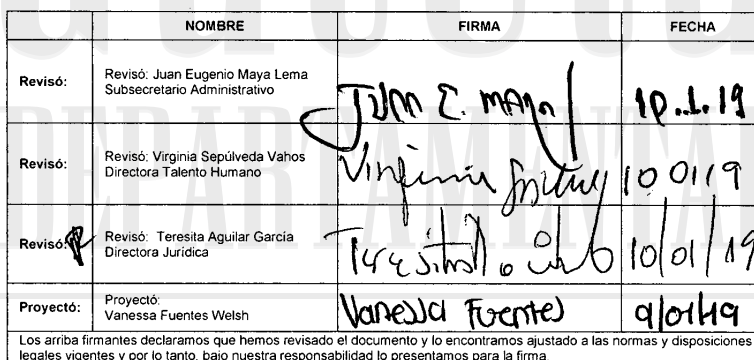 NOMBRE FIRMA FECHA
Revisó: Revisó: Juan Eugenio Maya Lema
Subsecretario Administrativo
JUAN E. MAYA 10.1.19
Revisó: Revisó: Virginia Sepúlveda Vahos
Directora Talento Humano
Virginia 10 01/19
Revisó: Revisó: Teresita Aguilar García
Directora Jurídica
Teresita 10/01/19
Proyectó: Proyectó:
Vanessa Fuentes Welsh
Vanessa Fuentes 9/01/19
Los arriba firmantes declaramos que hemos revisado el documento y lo encontramos ajustado a las normas y disposiciones
legales vigentes y por lo tanto, bajo nuestra responsabilidad lo presentamos para la firma.
DEPARTAMENTA